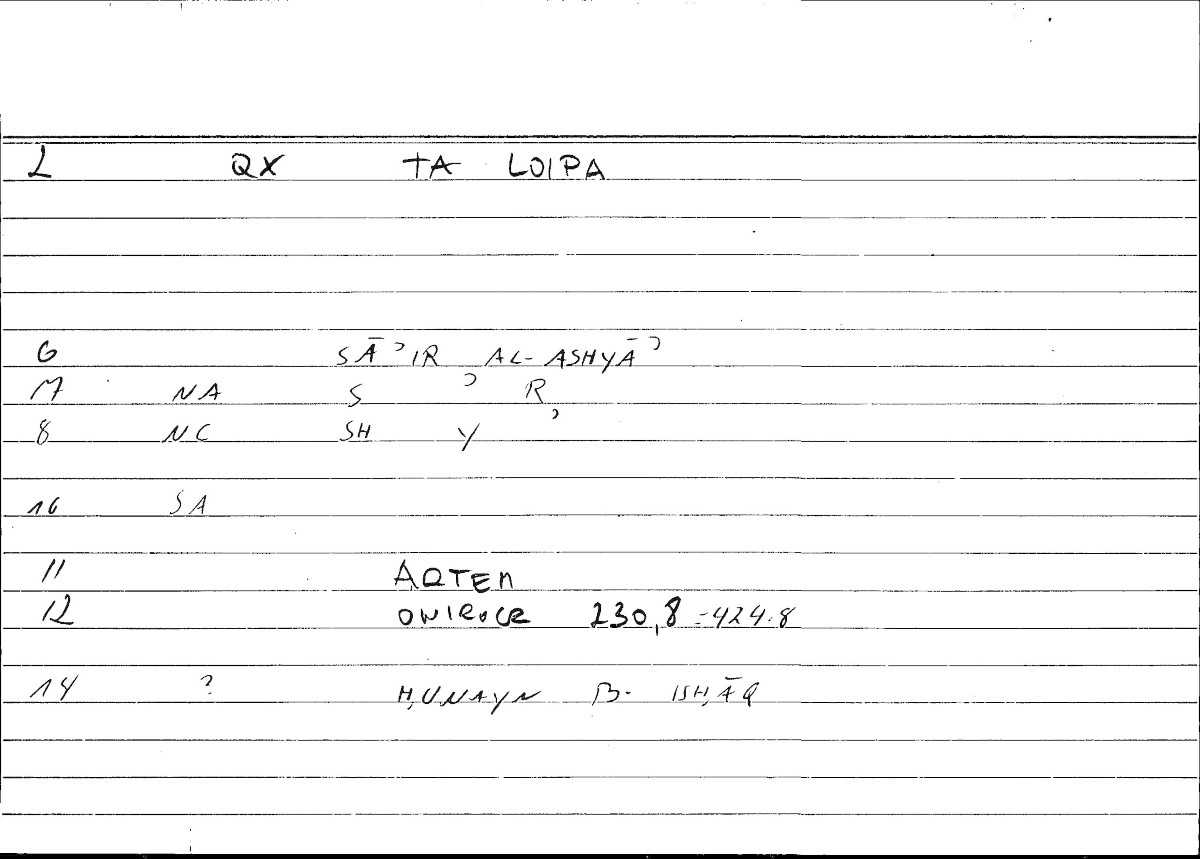 2 QX TA LOIPA
6 SĀʾIR AL-ASHYĀʾ
17 NA S ʾ R
8 NC SH Y ʾ
16 SA
11 ARTEM
12 ONIROCR 230,8-424.8
14 ? ḤUNAYN B. ISḤĀQ